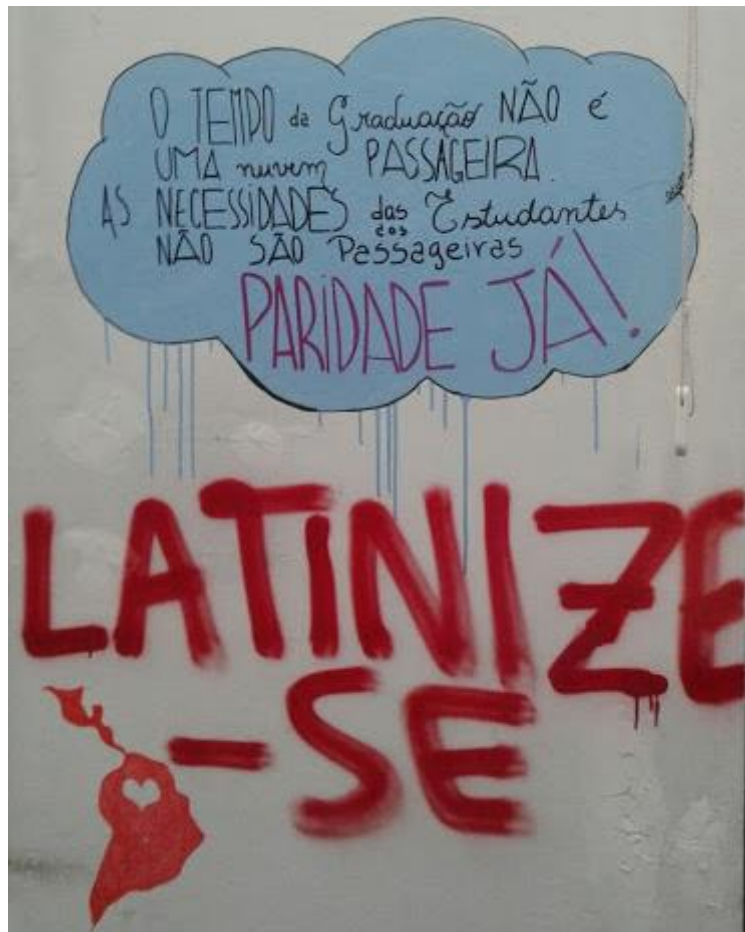 O TEMPO da Graduação NÃO é
UMA nuvem PASSAGEIRA.
AS NECESSIDADES das Estudantes
dos
NÃO SÃO Passageiras
PARIDADE JÁ!
LATINIZE
-SE